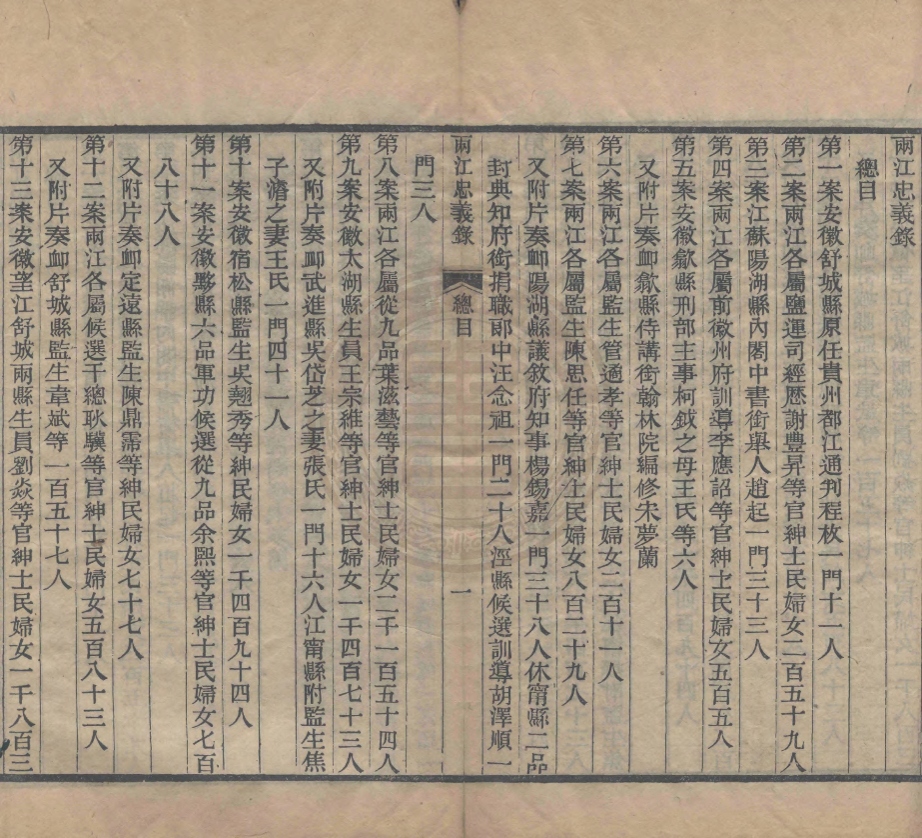 兩江忠義錄
總目
第一案安徽舒城縣原任貴州都江通判程枚一門十一人
第二案兩江各屬鹽運司經歷謝豐昇等官紳士民婦女二百五十九人
第三案江蘇陽湖縣內閣中書銜舉人趙起一門三十三人
第四案兩江各屬前徽州府訓導李應詔等官紳士民婦女五百五人
第五案安徽歙縣刑部主事柯鉞之母王氏等六人
又附片奏卹歙縣侍講銜翰林院編修朱夢蘭
第六案兩江各屬監生管適孝等官紳士民婦女二百十一人
第七案兩江各屬監生陳思任等官紳士民婦女八百二十九人
又附片奏卹陽湖縣議敘府知事楊錫嘉一門三十八人休甯縣二品
封典知府銜捐職郎中汪念祖一門二十八涇縣候選訓導胡澤順一
門三人
兩江忠義錄 總目 一
第八案兩江各屬從九品葉滋藝等官紳士民婦女二千一百五十四人
第九案安徽太湖縣生員王宗維等官紳士民婦女一千四百七十三人
又附片奏卹武進縣吳岱芝之妻張氏一門十六人江甯縣附監生焦
子濬之妻王氏一門四十一人
第十案安徽宿松縣監生吳翹秀等紳民婦女一千四百九十四人
第十一案安徽黟縣六品軍功候選從九品余熙等官紳士民婦女七百
八十八人
又附片奏卹定遠縣監生陳鼎需等紳民婦女七十七人
第十二案兩江各屬候選千總耿驥等官紳士民婦女五百八十三人
又附片奏卹舒城縣監生韋斌等一百五十七人
第十三案安徽望江舒城兩縣生員劉焱等官紳士民婦女一千八百三